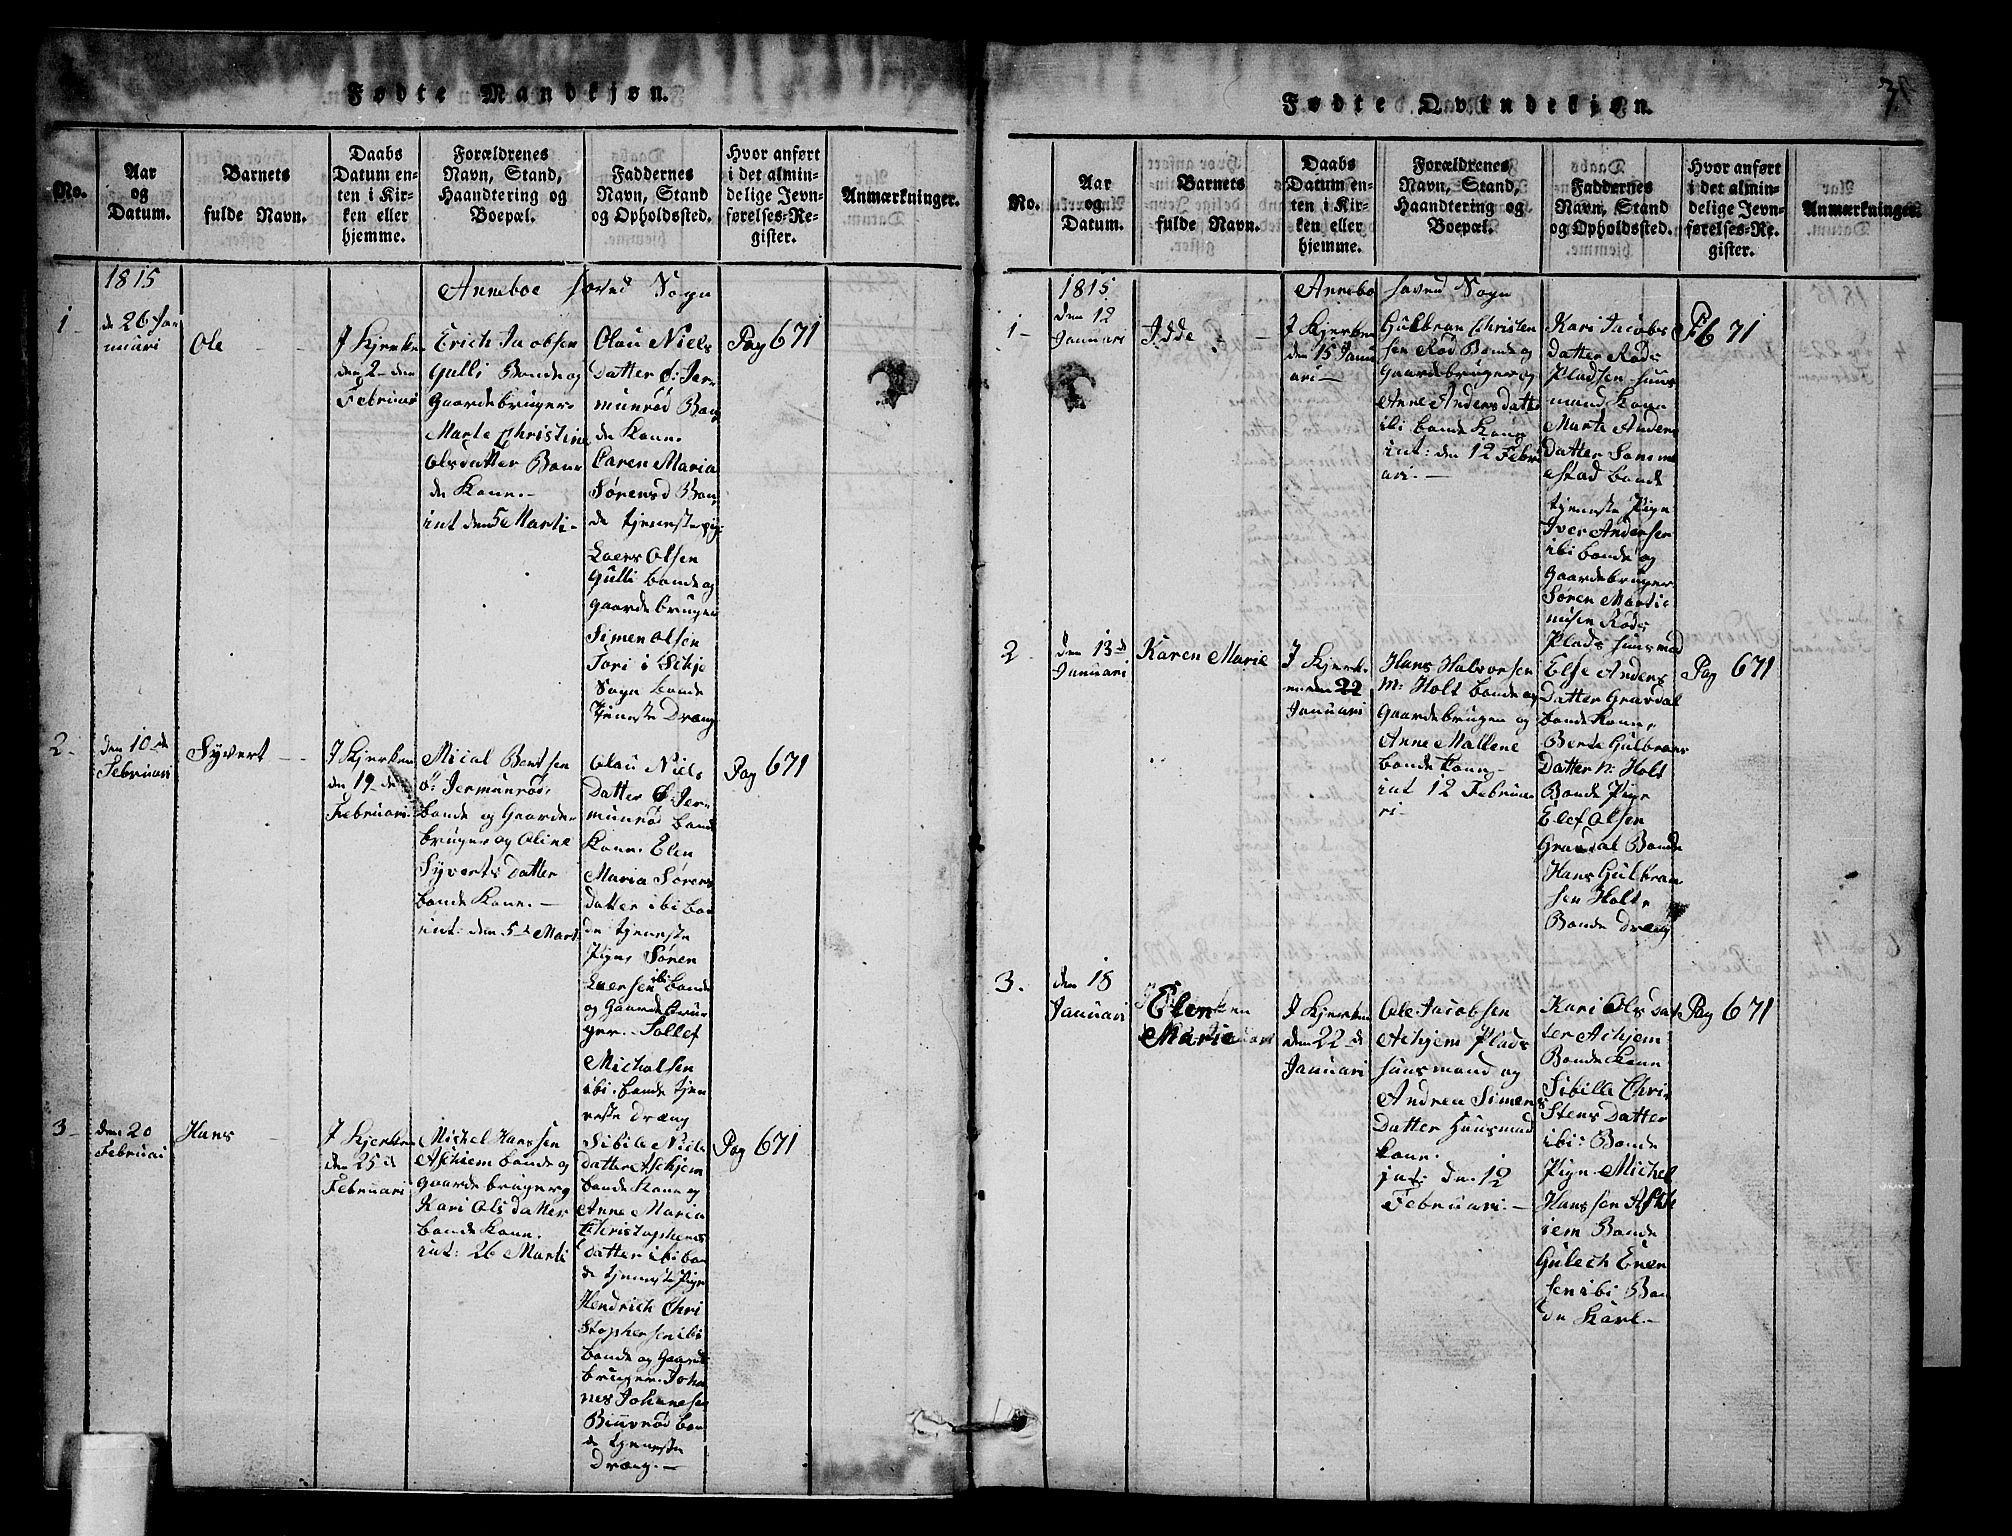 Fødte Mandkjøn.
No.
Aar
og
Datum.
Barnets
fulde Navn.
Daabs
Datum en-
ten i Kir-
ken eller
hjemme.
Forældrenes
Navn, Stand,
Haandtering og
Boepæl.
Faddernes
Navn, Stand
og Opholdssted.
Hvor anført
i det almin-
delige Jevn-
førelses-Re-
gister.
Anmærkninger.
1815
Anneboe hoved Sogn
1
de 26 Jan
nuari
Ole
J Kjerken
den 2 den
Februari
Erich Jacobsen
Gulli Bonde og
Gaardebruger
Marte Christine
Olsdatter Bon
de Kone.
int den 5 Marti
Olau Niels
Datter Ø: Jer-
munrød Bon
de Kone.
Caren Maria
Sørensd Bon
de tjeneste pig
Laers Olsen
Gulli bonde og
gaardebruger
Simen Olsen
Tori i Sckje
Sogn bonde
tjeneste Dræng
Pag 671
2
den 10de
Februari
Syvert
J Kjerken
den 19 de
Februari
Mical Bentsen
Ø: Jermunrød
bonde og Gaarde-
bruger og Oline
Syverts datter
bonde Kone.
int: den 5te Mart
Olau Niels
datter Ø: Jer-
munrød bonde
Kone. Elen
Maria Sørens
datter ibi bon
de tjeneste
Pige Søren
Laersen ibi bonde
og Gaarde bru
ger. Tollef
Micholsen
ibi. bonde tjen
neste dræng
Pag 671
3
den 20
Februai
Hans
J Kjerken
den 25 d
Februari
Michel Hanssen
Aschiem bonde og
gaardebruger og
Kari Ols datter
bonde Kone.
int: 26 Marti
Sibile Niels
datter Aschjem
bonde Kone og
Anne Maria
Christophers
datter ibi bon
de tjeneste Pige
Hendrich Chri
stophersen ibi
bonde og Gaarde
bruger. Joha
nes Johanesen
Biuerød bon
de tjeneste
Dræng.
Pag 671
Fødte Qvindekjøn.
3
No.
Aar
og
Datum.
Barnets
fulde Navn.
Daabs
Datum en-
ten i Kir-
ken eller
hjemme.
Forældrenes
Navn, Stand,
Haandtering og
Boepæl.
Faddernes
Navn, Stand
og Opholdssted.
Hvor anført
i det almin-
delige Jevn-
førelses-Re-
gister.
Anmærkninger.
1815
Annebo hoved Sogn
1
den 12
Januari
Idde
J Kjerken
den 15 Janu
ari
Gulbran Christen
sen Rød Bonde og
Gaardebruger og
Anne Andersdatter
ibi bonde Kone
int: den 12 Febru
ari.
Kari Jacobs
datter Røds
Pladsen huus
mand Kone
Marte Anders
datter Somme
stad bonde
tjeneste Pige
Iver Andersen
ibi bonde og
Gaardebruger
Søren Martin
nusen Røds
Plads huusmad
P 671
2
den 13d
Januari
Karen Marie
J Kjerke
n den 22
Januari
Hans Halvorsen
M: Holt bonde og
Gaardebruger og
Anne Mallene
bonde Kone
int 12 Februa
ri
Else Anders
Datter Gravdal
bonde Kone,
Berte Gulbrans
Datter N: Holt
Bonde Pige
Elef Olsen
Gravdal Bonde
Hans Gulbran
sen Holt
Bonde Dræng
Pag 671
3.
den 18
Januari
Elen
Marie
J Kjerken
den 22 d
Januari
Ole Jacobsen
Achjem Plads
huusmand og
Andrea Simens
Datter Huusmad
Kone.
int: den 12
Februari.
Kari Ols dat
ter Achjem
Bonde Kone
Sibille Chri
stens Datter
ibi: Bonde
Pige Michel
Hanssen Asch
iem Bonde
Gulech Ener
sen ibi Bon
de Karl.
Pag 671